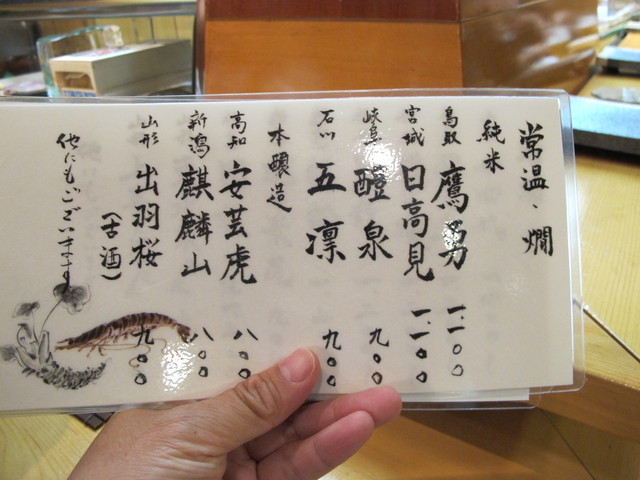 常温・燗
純米
鳥取 鷹勇 一.一〇〇
宮城 日高見 一.一〇〇
岐阜 醴泉 九〇〇
石川 五凛 九〇〇
本醸造
高知 安芸虎 八〇〇
新潟 麒麟山 八〇〇
山形 出羽桜 (古酒) 九〇〇
他にもございます